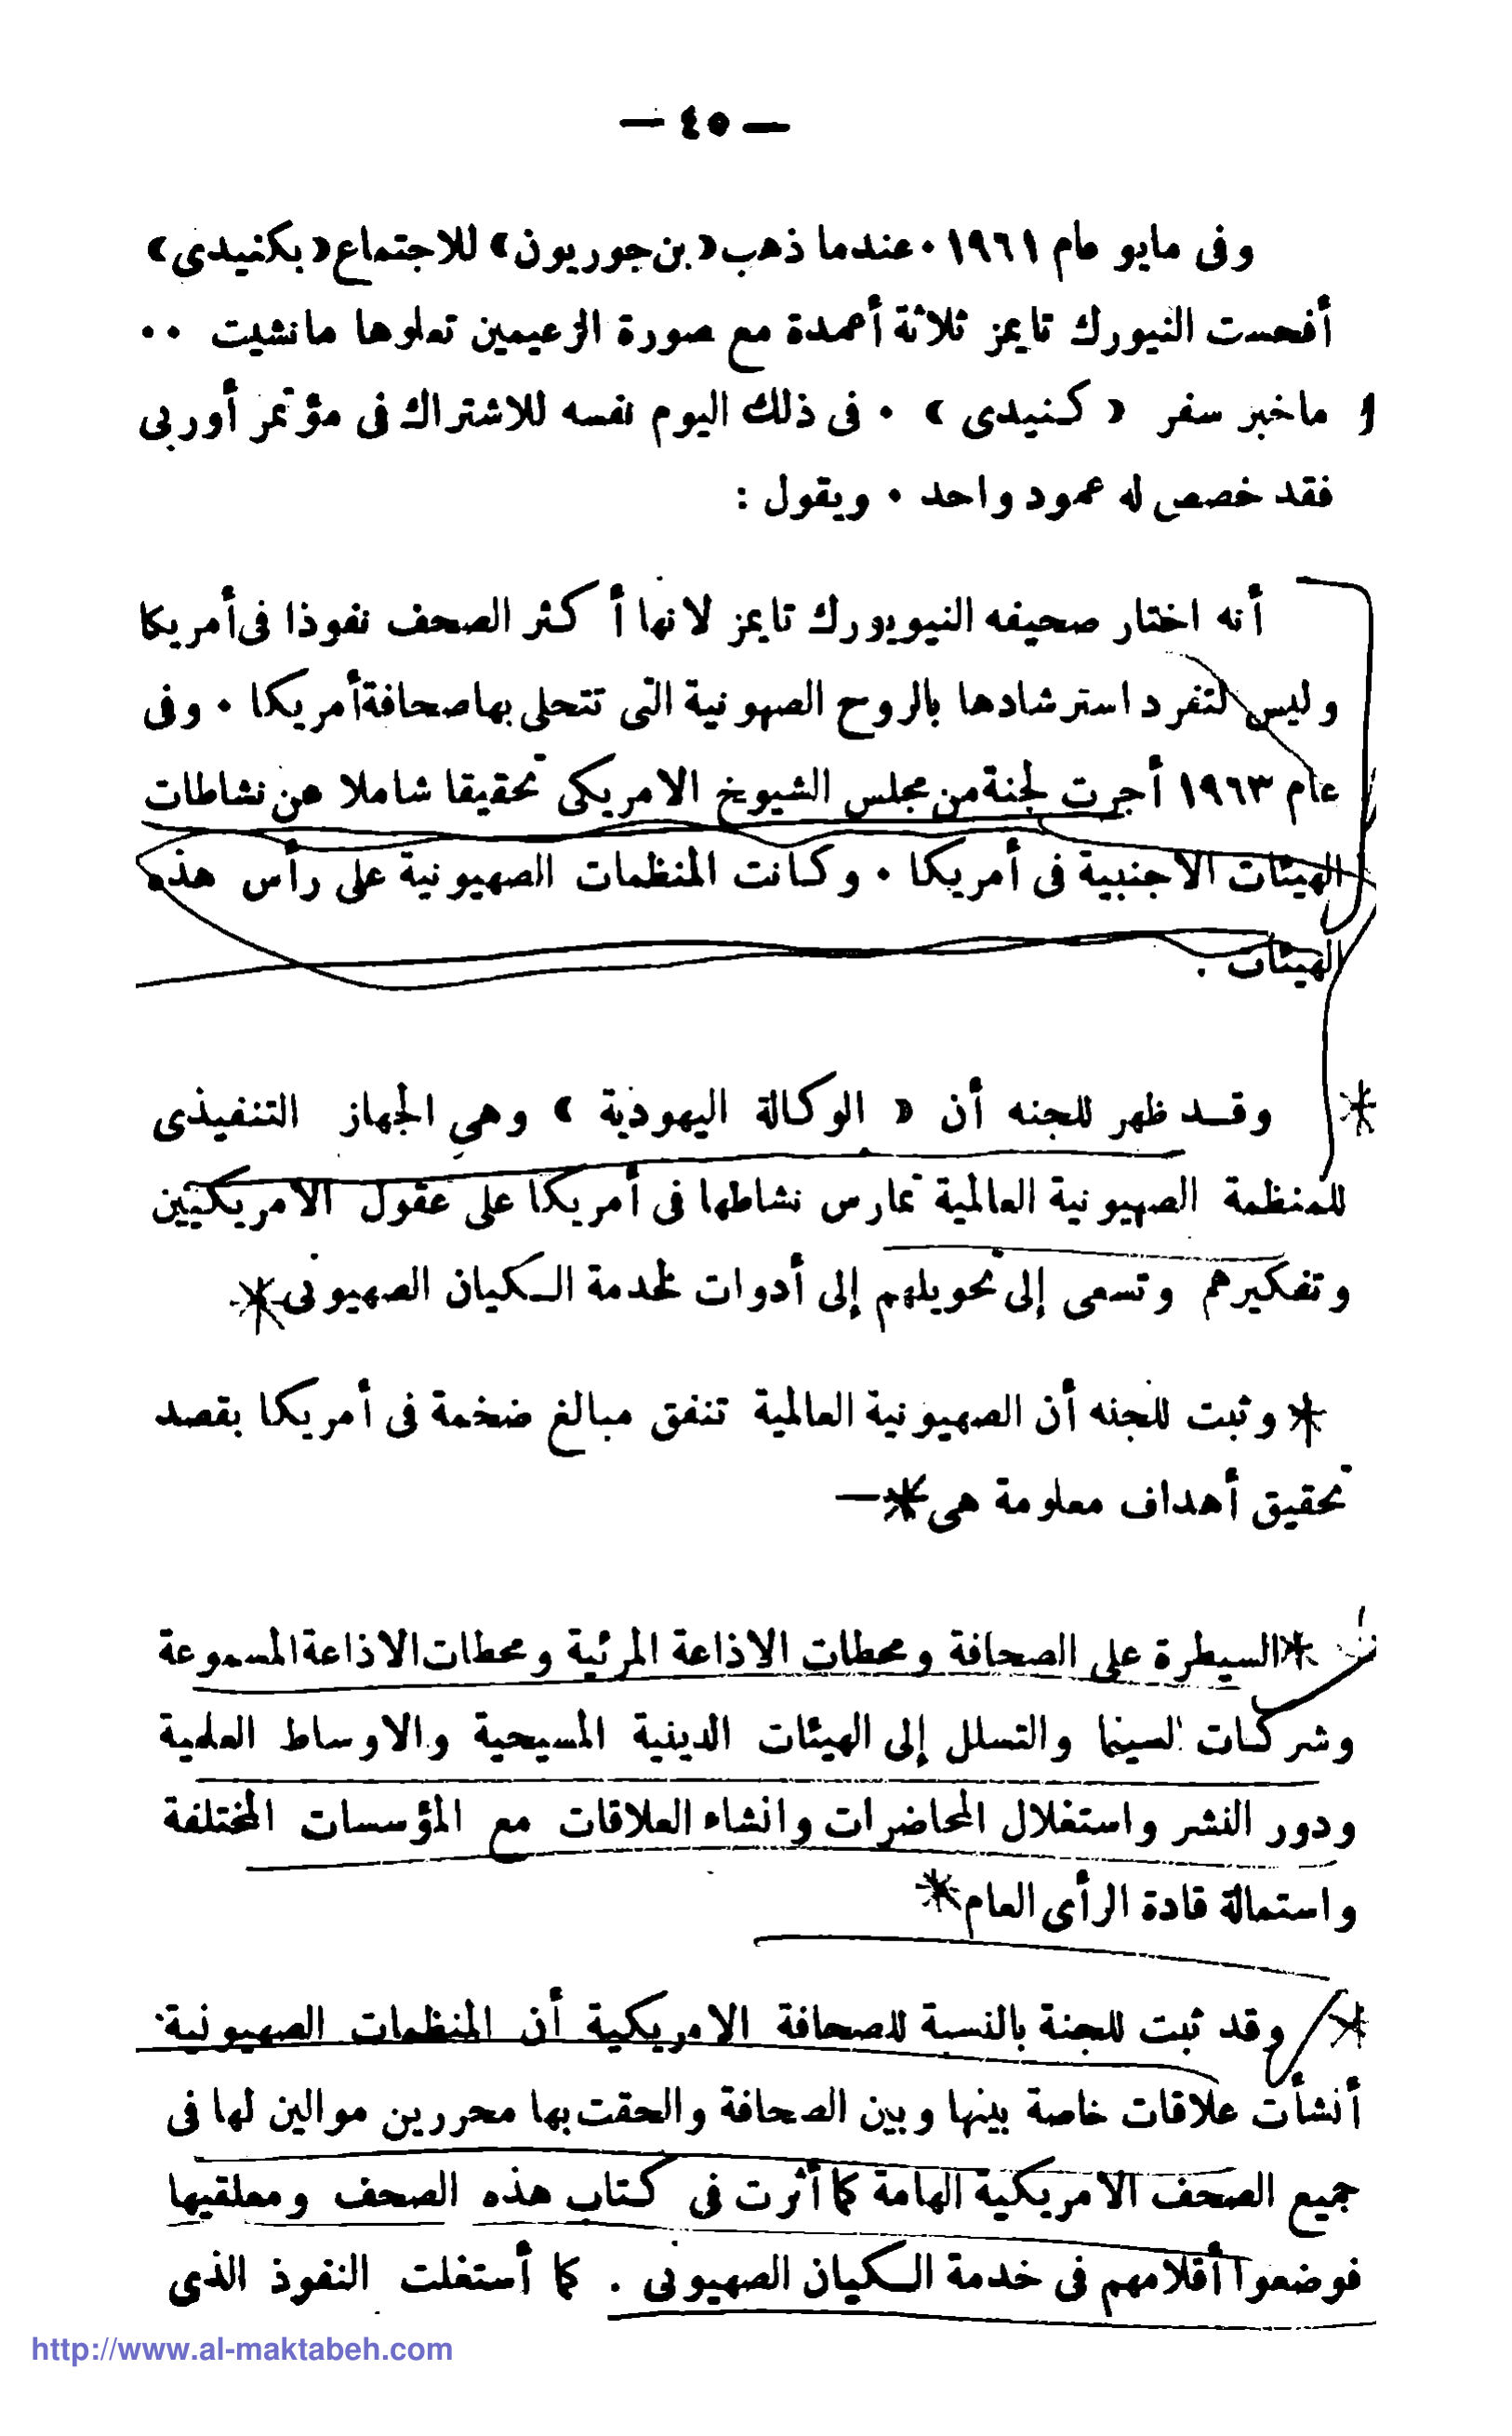 — ٤٥ —
وفى مايو عام ١٩٦١ . عندما ذهب «بن جوريون» للاجتماع «بكنيدى»
أفحست النيورك تايمز ثلاثة أعمدة مع صورة الزعيمين تعلوها مانشيت ..
ا ما خبر سفر « كنيدى » . فى ذلك اليوم نفسه للاشتراك فى مؤتمر أوربى
فقد خصص له عمود واحد . ويقول :
أنه اختار صحيفه النيويورك تايمز لانها أكثر الصحف نفوذا فى أمريكا
وليس لتفرد استرشادها بالروح الصهونية التى تتحلى بها صحافة أمريكا . وفى
عام ١٩٦٣ أجرت لجنة من مجلس الشيوخ الامريكى تحقيقا شاملا عن نشاطات
الهيئات الاجنبية فى أمريكا . وكانت المنظمات الصهيونية على رأس هذه
الهيئات .
* وقد ظهر للجنه أن « الوكالة اليهودية » وهي الجهاز التنفيذى
للمنظمة الصهيونية العالمية تمارس نشاطها فى أمريكا على عقول الامريكيين
وتفكيرهم وتسعى إلى تحويلهم إلى أدوات لخدمة الكيان الصهيونى *
* وثبت للجنه أن الصهيونية العالمية تنفق مبالغ ضخمة فى أمريكا بقصد
تحقيق أهداف معلومة هى * —
* السيطرة على الصحافة ومحطات الاذاعة المرئية ومحطات الاذاعة المسموعة
وشركات السينما والتسلل إلى الهيئات الدينية المسيحية والاوساط العلمية
ودور النشر واستغلال المحاضرات وانشاء العلاقات مع المؤسسات المختلفة
واستمالة قادة الرأى العام *
* وقد ثبت للجنة بالنسبة للصحافة الامريكية أن المنظمات الصهيونية
أنشأت علاقات خاصة بينها وبين الصحافة والحقت بها محررين موالين لها فى
جميع الصحف الامريكية الهامة كما أثرت فى كتاب هذه الصحف ومعلقيها
فوضعوا أقلامهم فى خدمة الكيان الصهيونى . كما أستغلت النفوذ الذى
http://www.al-maktabeh.com